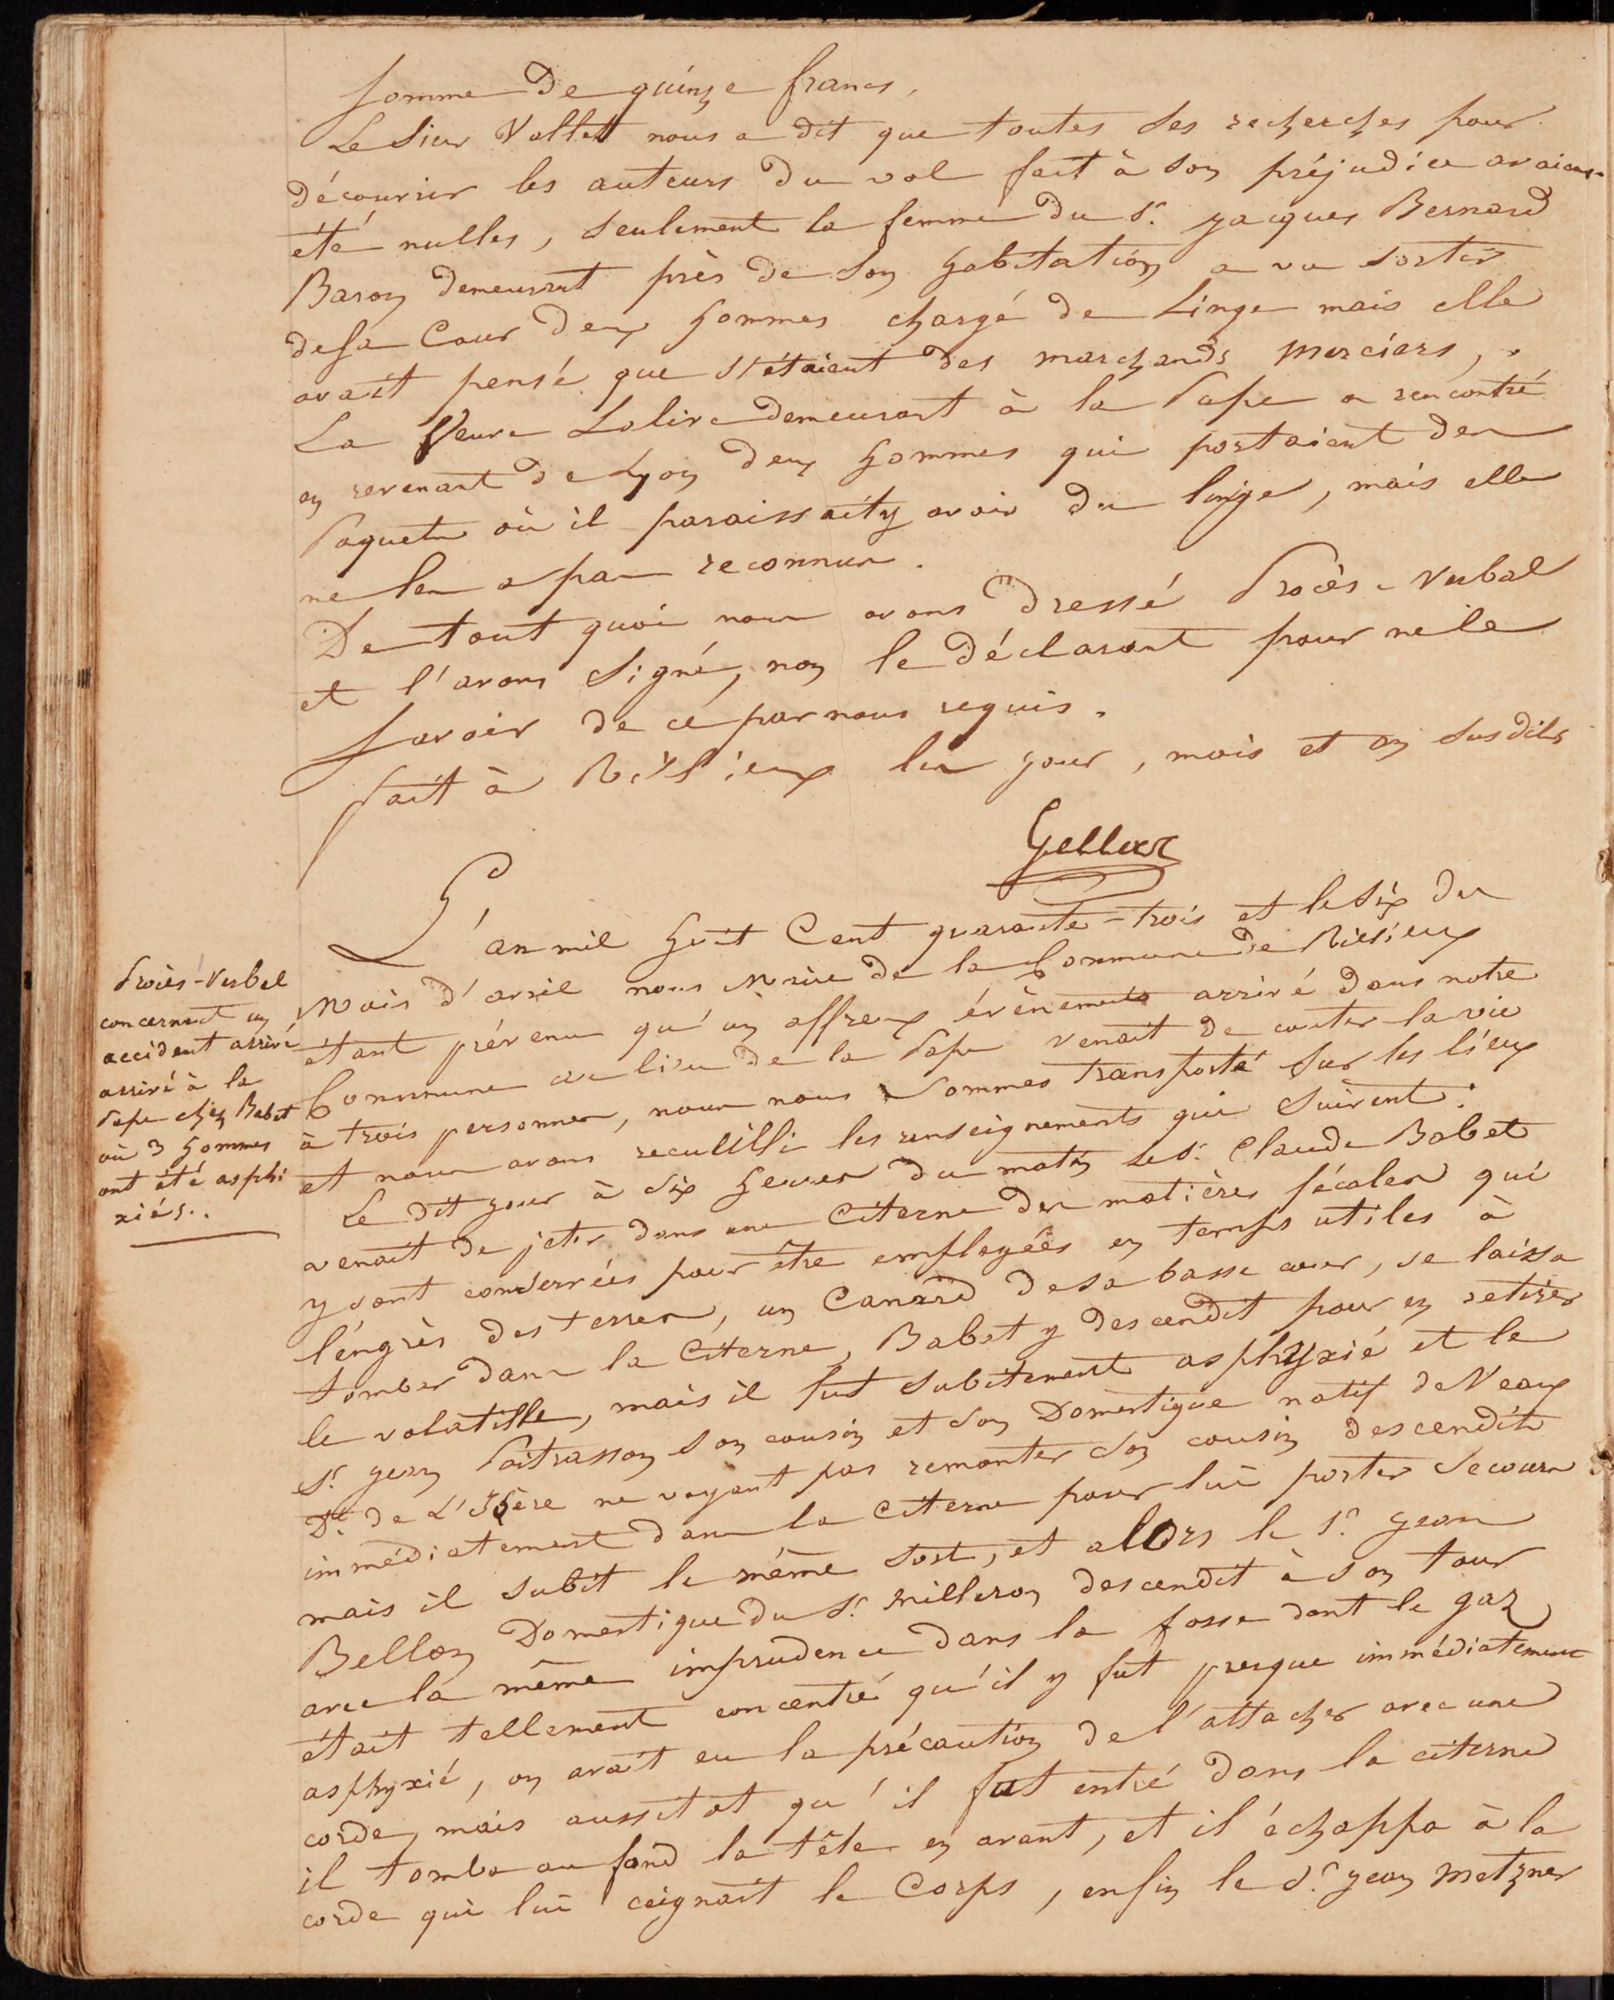 somme de quinze francs,
Le Sieur Vollet nous a dit que toutes ses recherches pour
découvrir les auteurs du vol fait à son préjudice avaient
été nulles, seulement la femme du Sr. Jacques Bernard
Baron demeurant près de son habitation a vu sortir
de sa Cour deux hommes chargé de Linge mais elle
avait pensé que s'étaient des marchands merciers,.
La Veuve Lolive demeurant à la Pape a rencontré
en revenant de Lyon deux hommes qui portaient des
Paquets où il paraissait y avoir du linge, mais elle
ne les a pas reconnus.
De tout quoi nous avons dressé Procès-Verbal
et l'avons signé, non le déclarant pour ne le
savoir de ce par nous requis.
fait à Rillieux les jour, mois et an susdits
L'an mil huit Cent quarante-trois et le six du
Mois d'avril nous Maire de la Commune de Rillieux
étant prévenu qu'un affreux évènements arrivé dans notre
Commune au lieu de la Pape venait de couter la vie
à trois personnes, nous nous sommes transporté sur les lieux
et nous avons recuillli les renseignements qui suivent:
Procès-Verbal
concernant un
accident arrivé
arrivé à la
Pape chez Babet
où 3 hommes
ont été asphi
xiés..
Le dit jour à six heures du matin le Sr. Claude Babet
venait de jeter dans une Citerne des matières fécales qui
y sont conservées pour être employées en temps utiles à
l'engrès des terres, un Canard de sa basse cour, se laissa
tomber dans la Citerne, Babet y descendit pour en retirer
le volatille, mais il fut subitement asphyxié et le
Sr. Jean Poitrasson son cousin et son Domestique natif de Veaux
Dt. de L'Isère ne voyant pas remonter son cousin descendit
immédiatement dans la Citerne pour lui porter secours
mais il subit le même sort, et alors le Sr. Jean
Bellon Domestique du Sr. Milleron descendit à son tour
avec la même imprudence dans la fosse dont le gaz
était tellement concentré qu'il y fut presque immédiatement
asphyxié, on avait eu la précaution de l'attacher avec une
corde, mais aussitot qu'il fut entré dans la citerne
il tomba au fond la tête en avant, et il échappa à la
corde qui lui ceignait le Corps, enfin le Sr. Jean Metzner